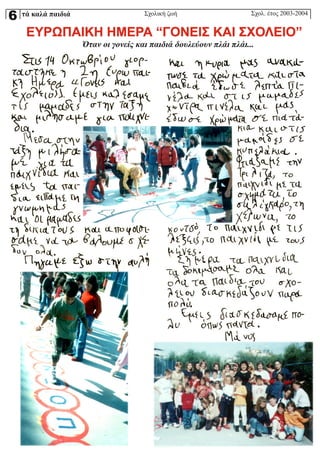 6 τά καλά παιδιά Σχολική ζωή Σχολ. έτος 2003-2004
ΕΥΡΩΠΑΙΚΗ ΗΜΕΡΑ “ΓΟΝΕΙΣ ΚΑΙ ΣΧΟΛΕΙΟ”
Όταν οι γονείς και παιδιά δουλεύουν πλάι πλάι...
Στις 14 Οκτωβρίου γιορ-
τάστηκε η 2η Ευρωπαι-
κή Ημέρα «Γονείς και
Σχολείο». Εμείς καλέσαμε
τις μαμάδες στην τάξη
και μιλήσαμε για παιχνί-
δια.
Μέσα στην
τάξη μιλήσα-
με για τα
παιχνίδια και
εμείς τα παι-
διά είπαμε τη
γνώμη μας
και οι μαμάδες
τη δικιά τους και αποφασί-
σαμε να τα βάλουμε σχέ-
διο όλα.
Πήγαμε έξω στην αυλή
και η κυρία μας ανακά-
τωσε τα χρώματα και στα
παιδιά έδωσε λεπτά πι-
νέλα και στις μαμάδες
χοντρά πινέλα και μας
έδωσε χρώματα σε πιατά-
κια και στις
μαμάδες σε
κυπελάκια.
Φτιάξαμε την
τρίλιζα, το
παιχνίδι με τα
σχήματα, το
σαλίγκαρο, τη
χελώνα, το
κουτσό, το παιχνίδι με τις
λέξεις, το παιχνίδι με τους
μήνες.
Σήμερα τα παιχνίδια
τα δοκιμάσαμε όλα και
όλα τα παιδιά του σχο-
λείου διασκεδάζουν πάρα
πολύ.
Εμείς διασκεδάσαμε πο-
λύ όπως πάντα.
Μάνος